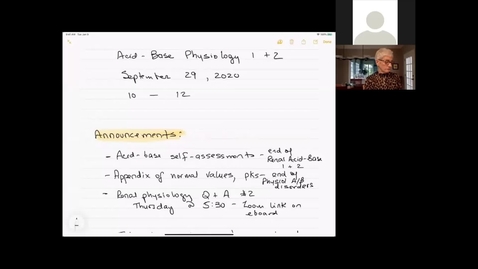 Acid-Base Physiology 1 + 2
September 29, 2020
10 — 12
Announcements:
- Acid-base self-assessments - end of Renal Acid-Base 1 + 2
- Appendix of normal values, pks - end of Physiol A/B disorders
- Renal physiology Q + A #2
Thursday @ 5:30 - Zoom link on eboard